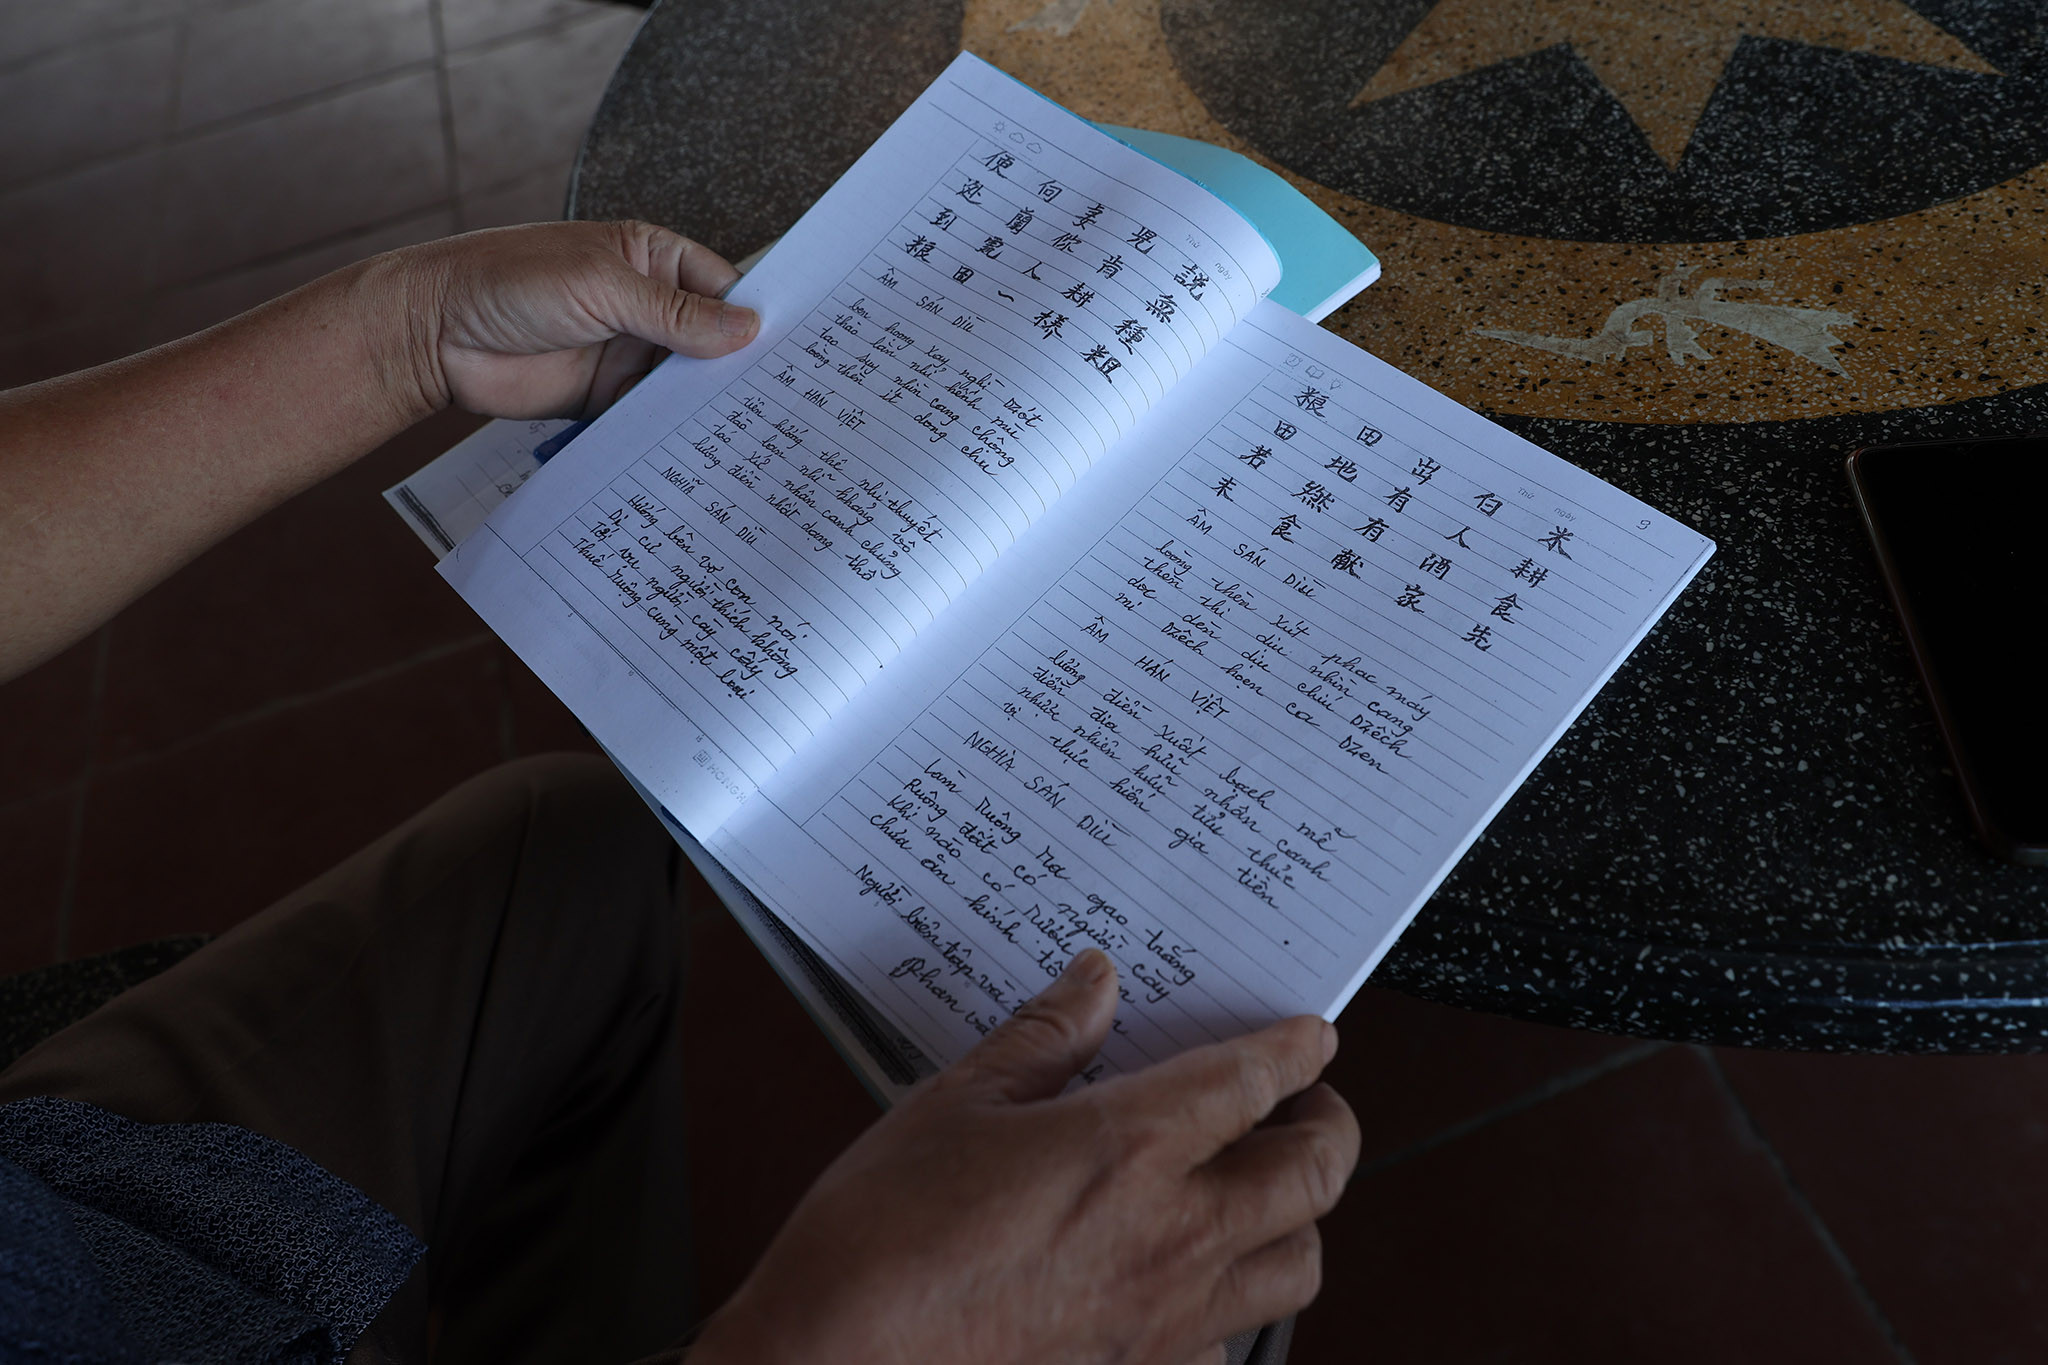 便 向 妻 児 説
迯 蘭 你 肯 無
到 處 人 耕 種
粮 田 一 様 粗
ÂM SÁN DÌU
ben hoọng xay nghì dzót
thào làn nhì hếnh mù
tao suy nhìn cang chộng
loòng thèn ít dong chu
ÂM HÁN VIỆT
tiện hướng thê nhi thuyết
đào lan nhĩ khẳng vô
táo xế nhân canh chủng
lương điền nhất dạng thô
NGHĨA SÁN DÌU
Hướng bên vợ con nói
Di cư người thích không
Tới vụ người cày cấy
Thuế ruộng cùng một loại
HONG H
Thứ
ngày
9
粮 田 出 白 米
田 地 有 人 耕
若 然 有 酒 食
未 食 献 家 先
ÂM SÁN DÌU
loòng thèn xút phac máy
thèn thi diu nhìn cang
doc dèn diu chiú dzêch
mi dzêch hoen ca dzen
ÂM HÁN VIỆT
lương điền xuất bạch mễ
điền địa hữu nhân canh
nhược nhiên hữu tửu thực
vị thực hiến gia tiên
NGHĨA SÁN DÌU
Làm ruộng ra gạo trắng
Ruộng đất có người cày
Khi nào có rượu
chưa ăn kính tổ
Người biên tập và
Phan